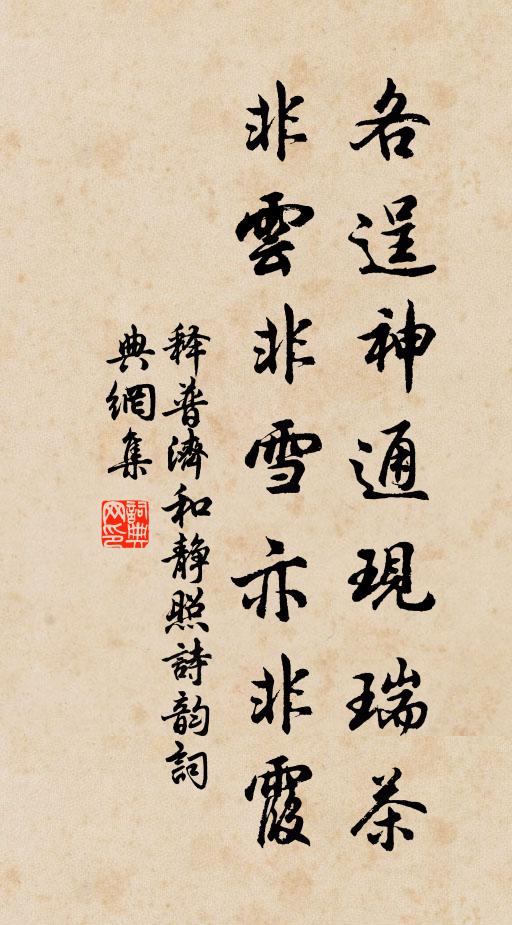 各逞神通現瑞茶
非雲非雪亦非霞
释普濟和静照詩韵詞
典網集
詞典網印